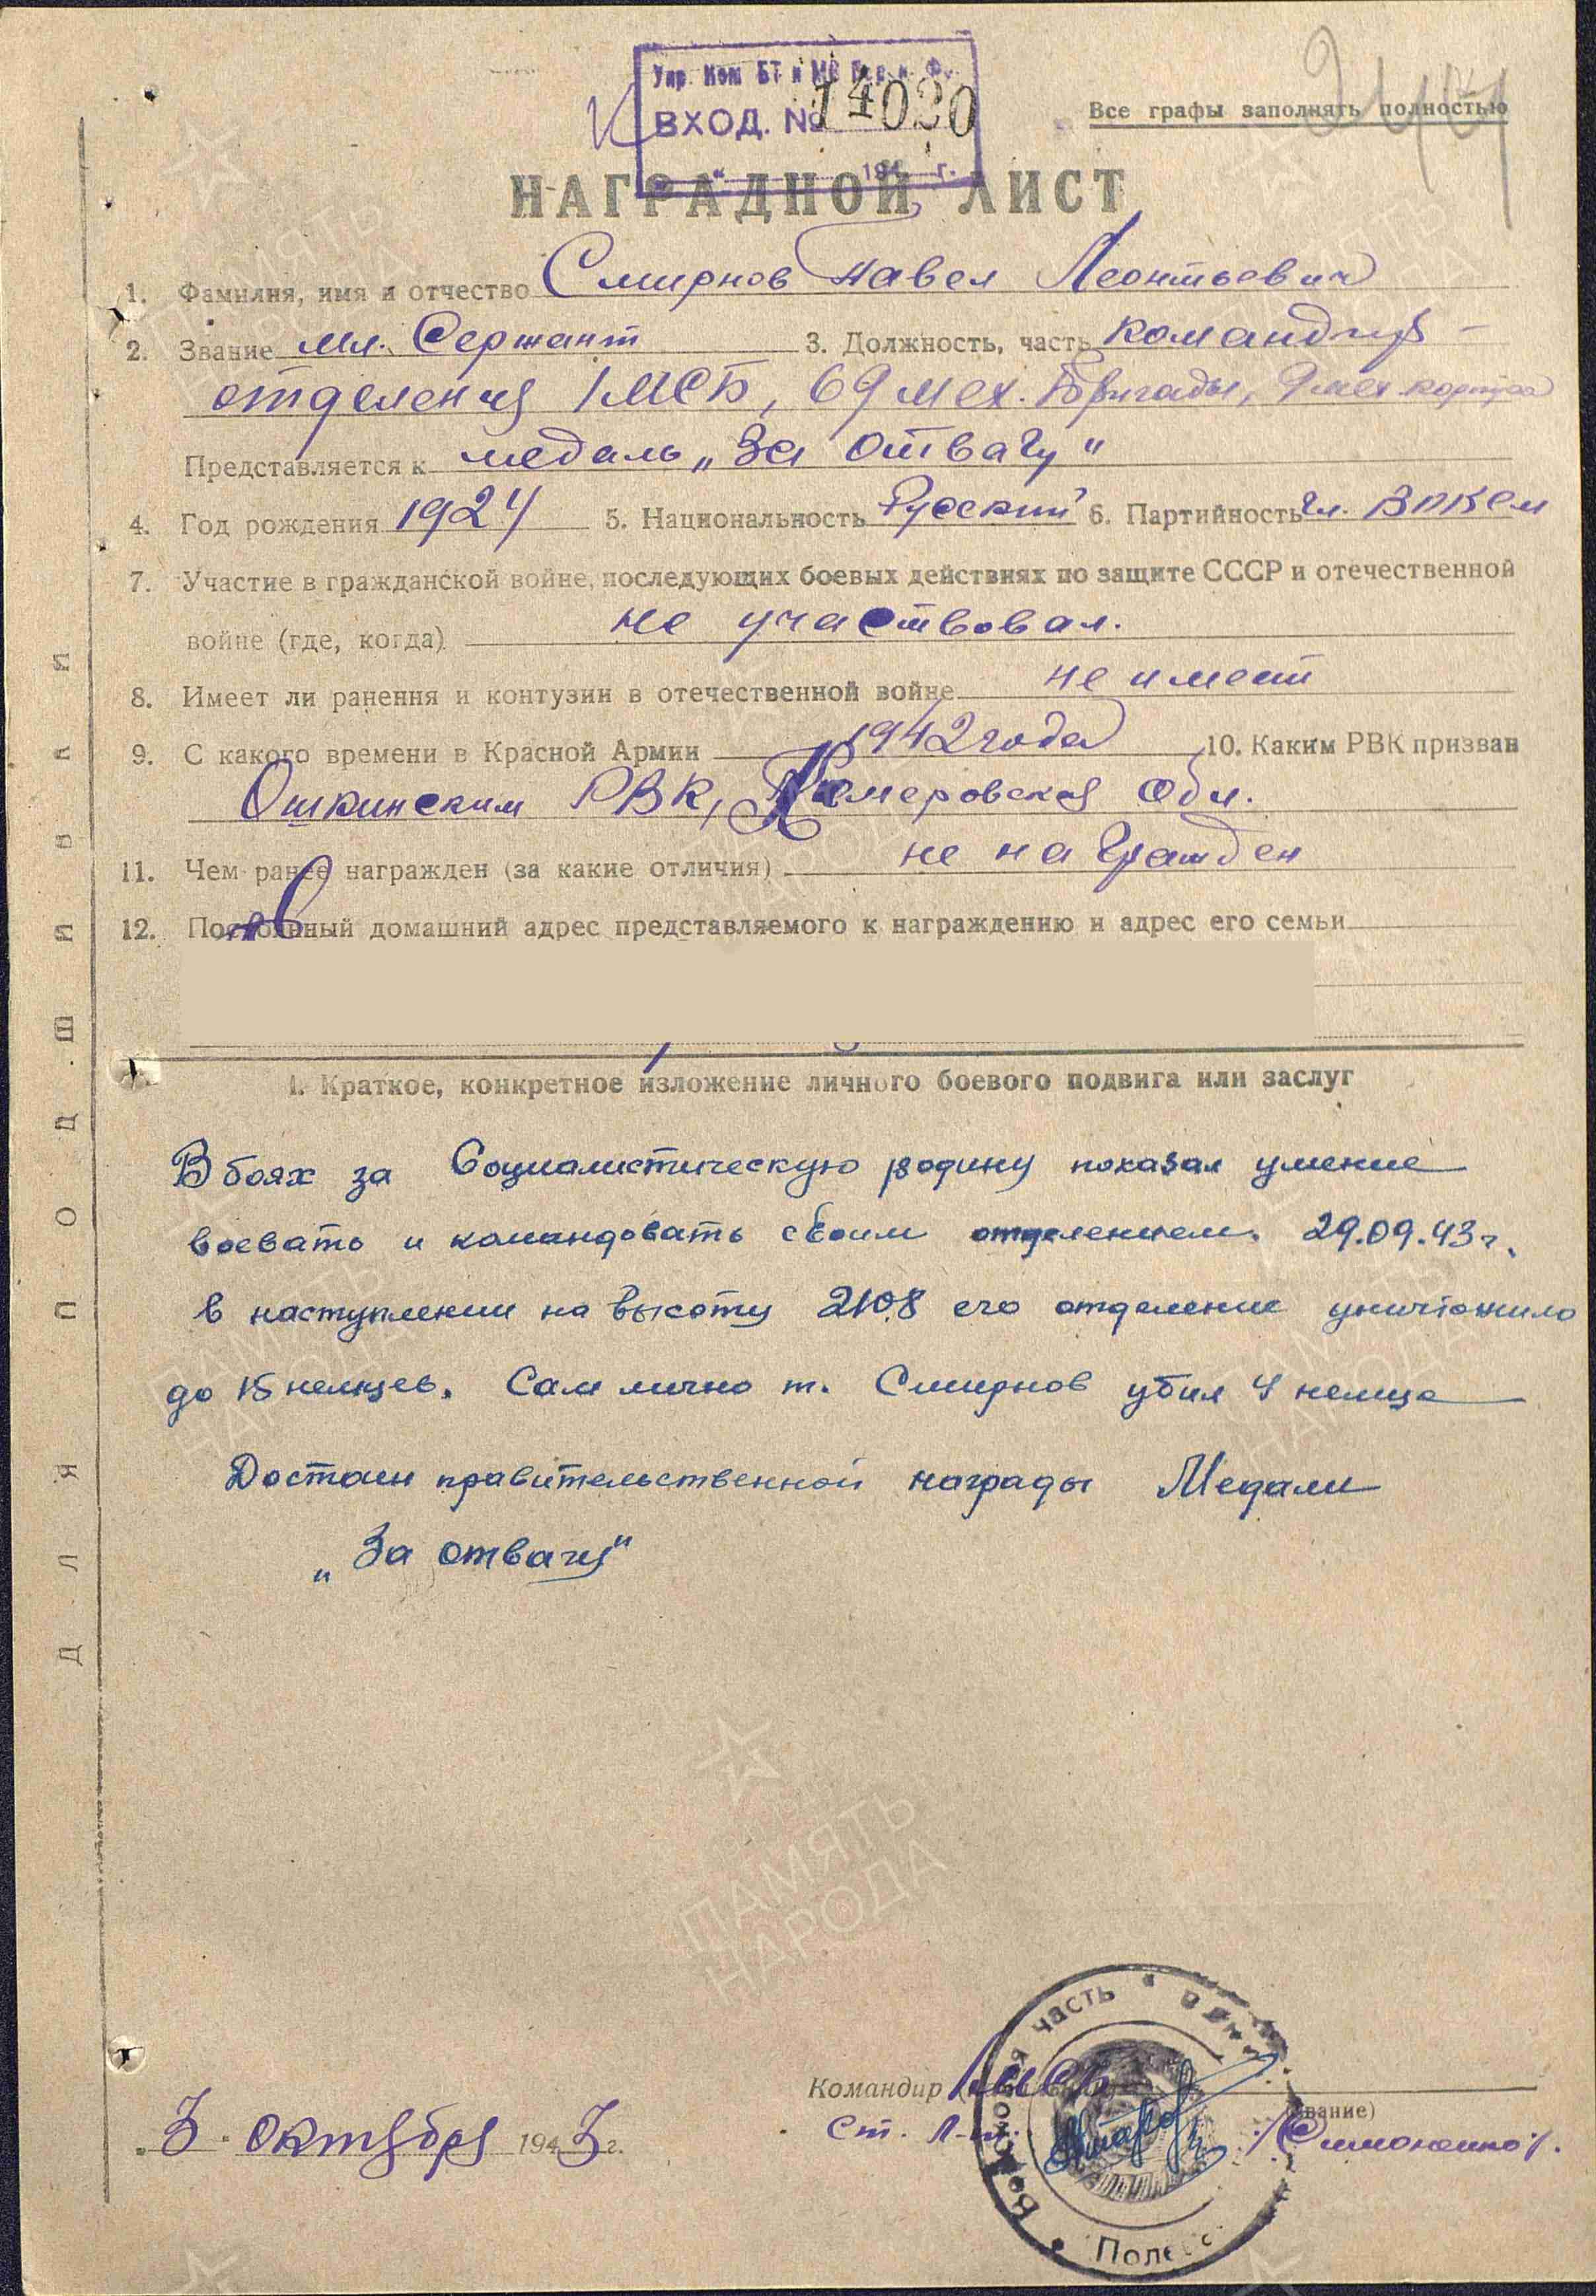 Упр. Ком БТ и МВ
ВХОД. № 14020
194 г.
Все графы заполнять полностью
НАГРАДНОЙ ЛИСТ
1. Фамилия, имя и отчество Смирнов Павел Леонтьевич
2. Звание мл. Сержант 3. Должность, часть командир
отделения 1 МСБ, 69 мех. Бригады, 9 мех. корпуса
Представляется к медаль „За отвагу"
4. Год рождения 1924 5. Национальность Русский 6. Партийность чл. ВЛКСМ
7. Участие в гражданской войне, последующих боевых действиях по защите СССР и отечественной
войне (где, когда) не участвовал.
8. Имеет ли ранения и контузии в отечественной войне не имеет
9. С какого времени в Красной Армии 1942 года 10. Каким РВК призван
РВК, Кемеровская Обл.
11. Чем ранее награжден (за какие отличия) не награжден
12. Постоянный домашний адрес представляемого к награждению и адрес его семьи
I. Краткое, конкретное изложение личного боевого подвига или заслуг
В боях за Социалистическую родину показал умение
воевать и командовать своим отделением. 29.09.43 г.
в наступлении на высоту 210.8 его отделение уничтожило
до 15 немцев. Сам лично т. Смирнов убил 4 немца
Достоин правительственной награды Медали
„За отвагу"
ДЛЯ ПОДШИВКИ
Командир 1 МСБ
(звание)
Ст. Л-т. /Симоненко/.
3 Октября 1943 г.
Войсковая часть Полев
ПАМЯТЬ
НАРОДА